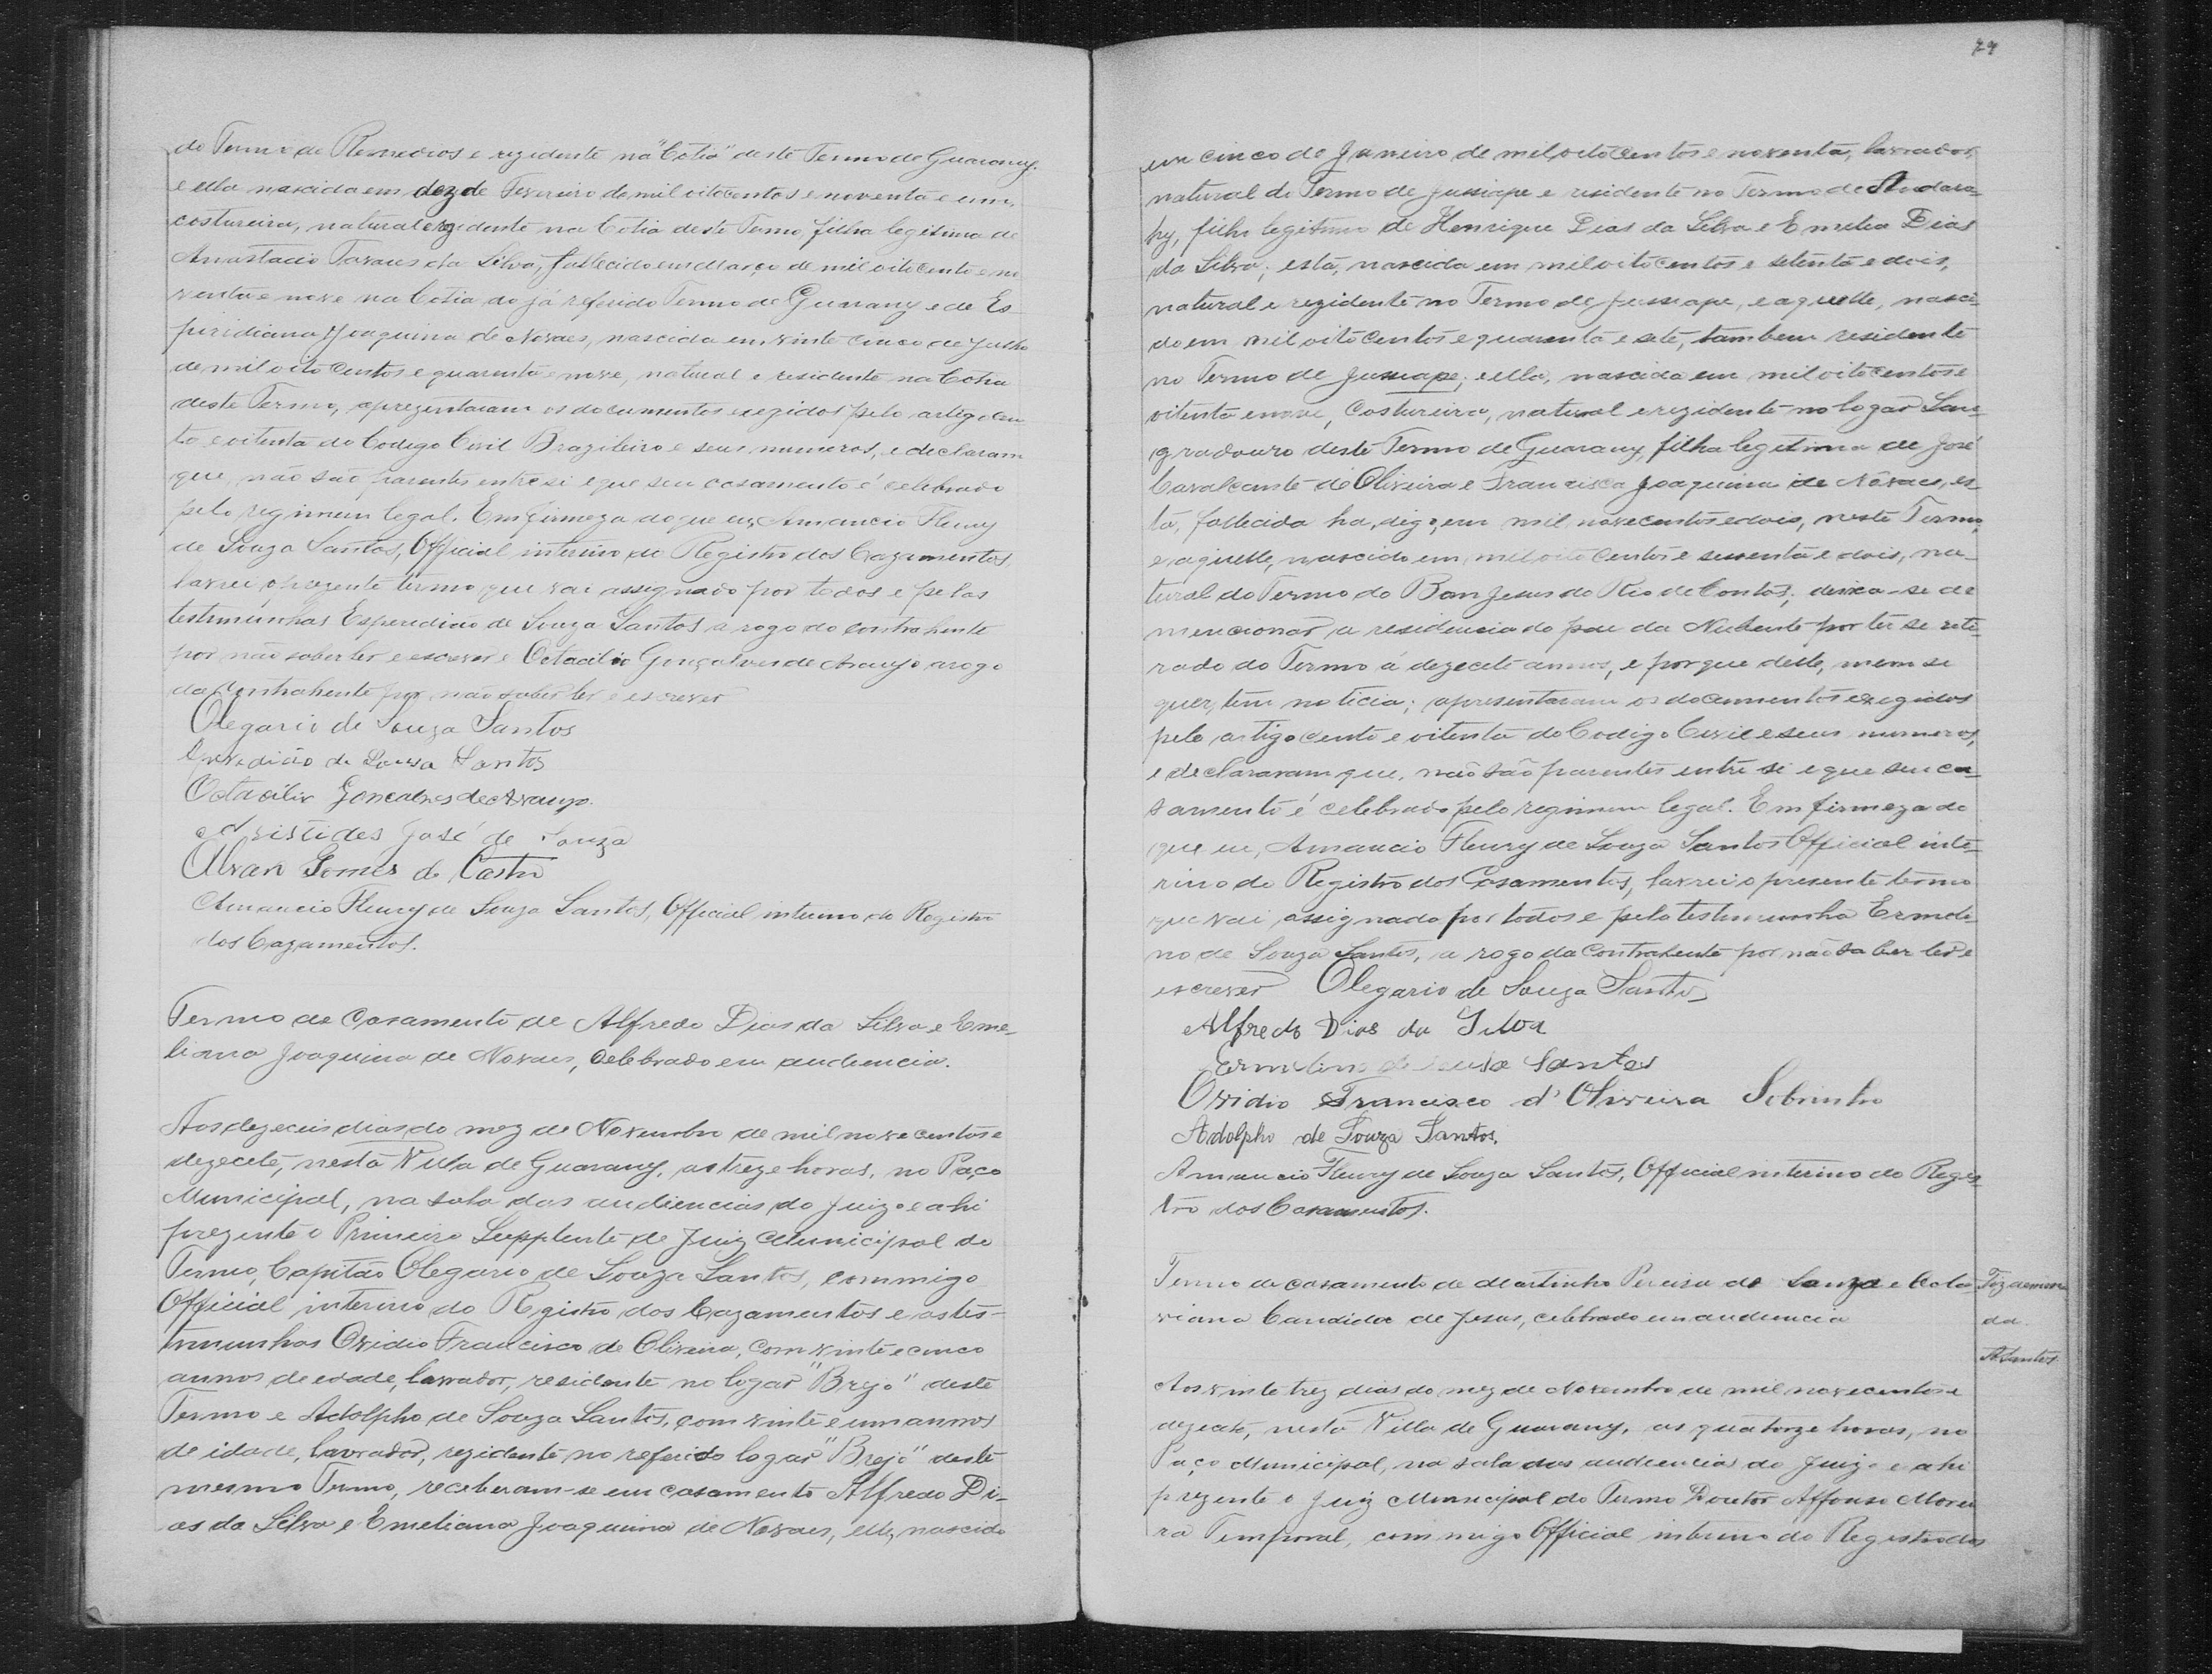 do Termo de Remedios e rezidente na "Cotia" deste Termo de Guarany.
e ella nascida em dez de Fevereiro de mil oitocentos e noventa e um,
costureira, natural e rezidente na Cotia deste Termo, filha legitima de
Anastacio Tavares da Silva, fallecido em Março de mil oitocento e no
venta e nove na Cotia do já referido Termo de Guarany e de Es
piridiana Joaquina de Novaes, nascida em vinte cinco de Julho
de mil oito centos e quarenta e nove, natural e residente na Cotia
deste Termo, aprezentaram os documentos exegidos pelo artigo cen
to e oitenta do Codego Civil Brazileiro e seus numeros, e declaram
que, não são parentes entre si e que seu casamento é celebrado
pelo regimem legal. Em firmeza do que eu, Amancio Fleury
de Souza Santos, Official interino do Registro dos Cazamentos,
lavrei o prezente termo que vai assignado por todos e pelas
testimunhas Esperidião de Souza Santos a rogo do contrahente
por não saber ler e escrever e Octacilio Gonçalves de Araujo a rogo
da Contrahente por não saber ler e escrever
Olegario de Souza Santos
Speredião de Souza Santos
Octacilio Goncalves de Araujo.
Aristides José de Souza
Alvan Gomes de Castro
Amancio Fleury de Souza Santos, Official interino do Registro
dos Cazamentos.
Termo de Casamento de Alfredo Dias da Silva e Eme-
liana Joaquina de Novaes, celebrado em audiencia.
Aos dezeceis dias do mez de Novembro de mil nove centos e
dezecete, nesta Villa de Guarany, as treze horas, no Paço
Municipal, na sala das audiencias do Juizo e ahi
prezente o Primeiro Supplente de Juiz Municipal do
Termo, Capitão Olegario de Souza Santos, commigo
Official interino do Registro dos Cazamentos e as tes-
timunhas Ovidio Francisco de Oliveira, com vinte e cinco
annos de edade, lavrador, residente no logar "Brejo" deste
Termo e Adolpho de Souza Santos, com vinte e um annos
de idade, lavrador, rezidente no referido logar "Brejo" deste
mesmo Termo, receberam-se em casamento Alfredo Di-
as da Silva e Emeliana Joaquina de Novaes, elle, nascido
74
em cinco de Janeiro de mil oitocentos e noventa, lavrador,
natural do Termo de Jussiape e residente no Termo de Andara-
hy, filho legitimo de Henrique Dias da Silva e Emelia Dias
da Silva; esta, nascida em mil oito centos e setenta e dois,
natural e rezidente no Termo de Jussiape, e aquelle, nasci-
do em mil oito centos e quarenta e sete, tambem residente
no Termo de Jussiape; e ella, nascida em mil oitocentos e
oitenta e nove, costureira, natural e rezidente no logar San-
gradouro deste Termo de Guarany, filha legitima de José
Cavalcante de Oliveira e Francisca Joaquina de Novaes, es-
ta, fallecida ha, digo, em mil nove centos e dois, neste Termo,
e aquelle, nascido em mil oito centos e sessenta e dois, na-
tural do Termo do Bom Jesus do Rio de Contas; deixa-se de
mencionar a residencia do pae da Nubente por ter se reti-
rado do Termo á dezecete annos, e porque deste, nem se
quer, tem noticia; apresentaram os documentos exegidos
pelo artigo cento e oitenta do Codigo Civil e seus numeros,
e declararam que, não são parentes entre si e que seu ca-
samento é celebrado pelo regimem legal. Em firmeza do
que eu, Amancio Fleury de Souza Santos Official inte-
rino do Registro dos Casamentos, lavrei o presente termo
que vai assignado por todos e pela testimunha Ermeli-
no de Souza Santos, a rogo da Contrahente por não saber ler e
escrever Olegario de Souza Santos
Alfredo Dias da Silva
Ermelino de Souza Santos
Ovidio Francisco d'Oliveira Sobrinho
Adolpho de Souza Santos.
Amancio Fleury de Souza Santos, Official interino do Regis-
tro dos Casamentos.
Termo de casamento de Martinho Pereira de Souza e Octa-
viana Candida de Jesus, celebrado em audiencia
Fiz a emen
da.
A Santos.
Aos vinte trez dias do mez de Novembro de mil nove centos e
dezecete, nesta Villa de Guarany, as quatorze horas, no
Paço Municipal, na sala das audiencias do Juizo e ahi
prezente o Juiz Municipal do Termo Doutor Affonso Morei
ra Temporal, commigo Official interino do Registro dos